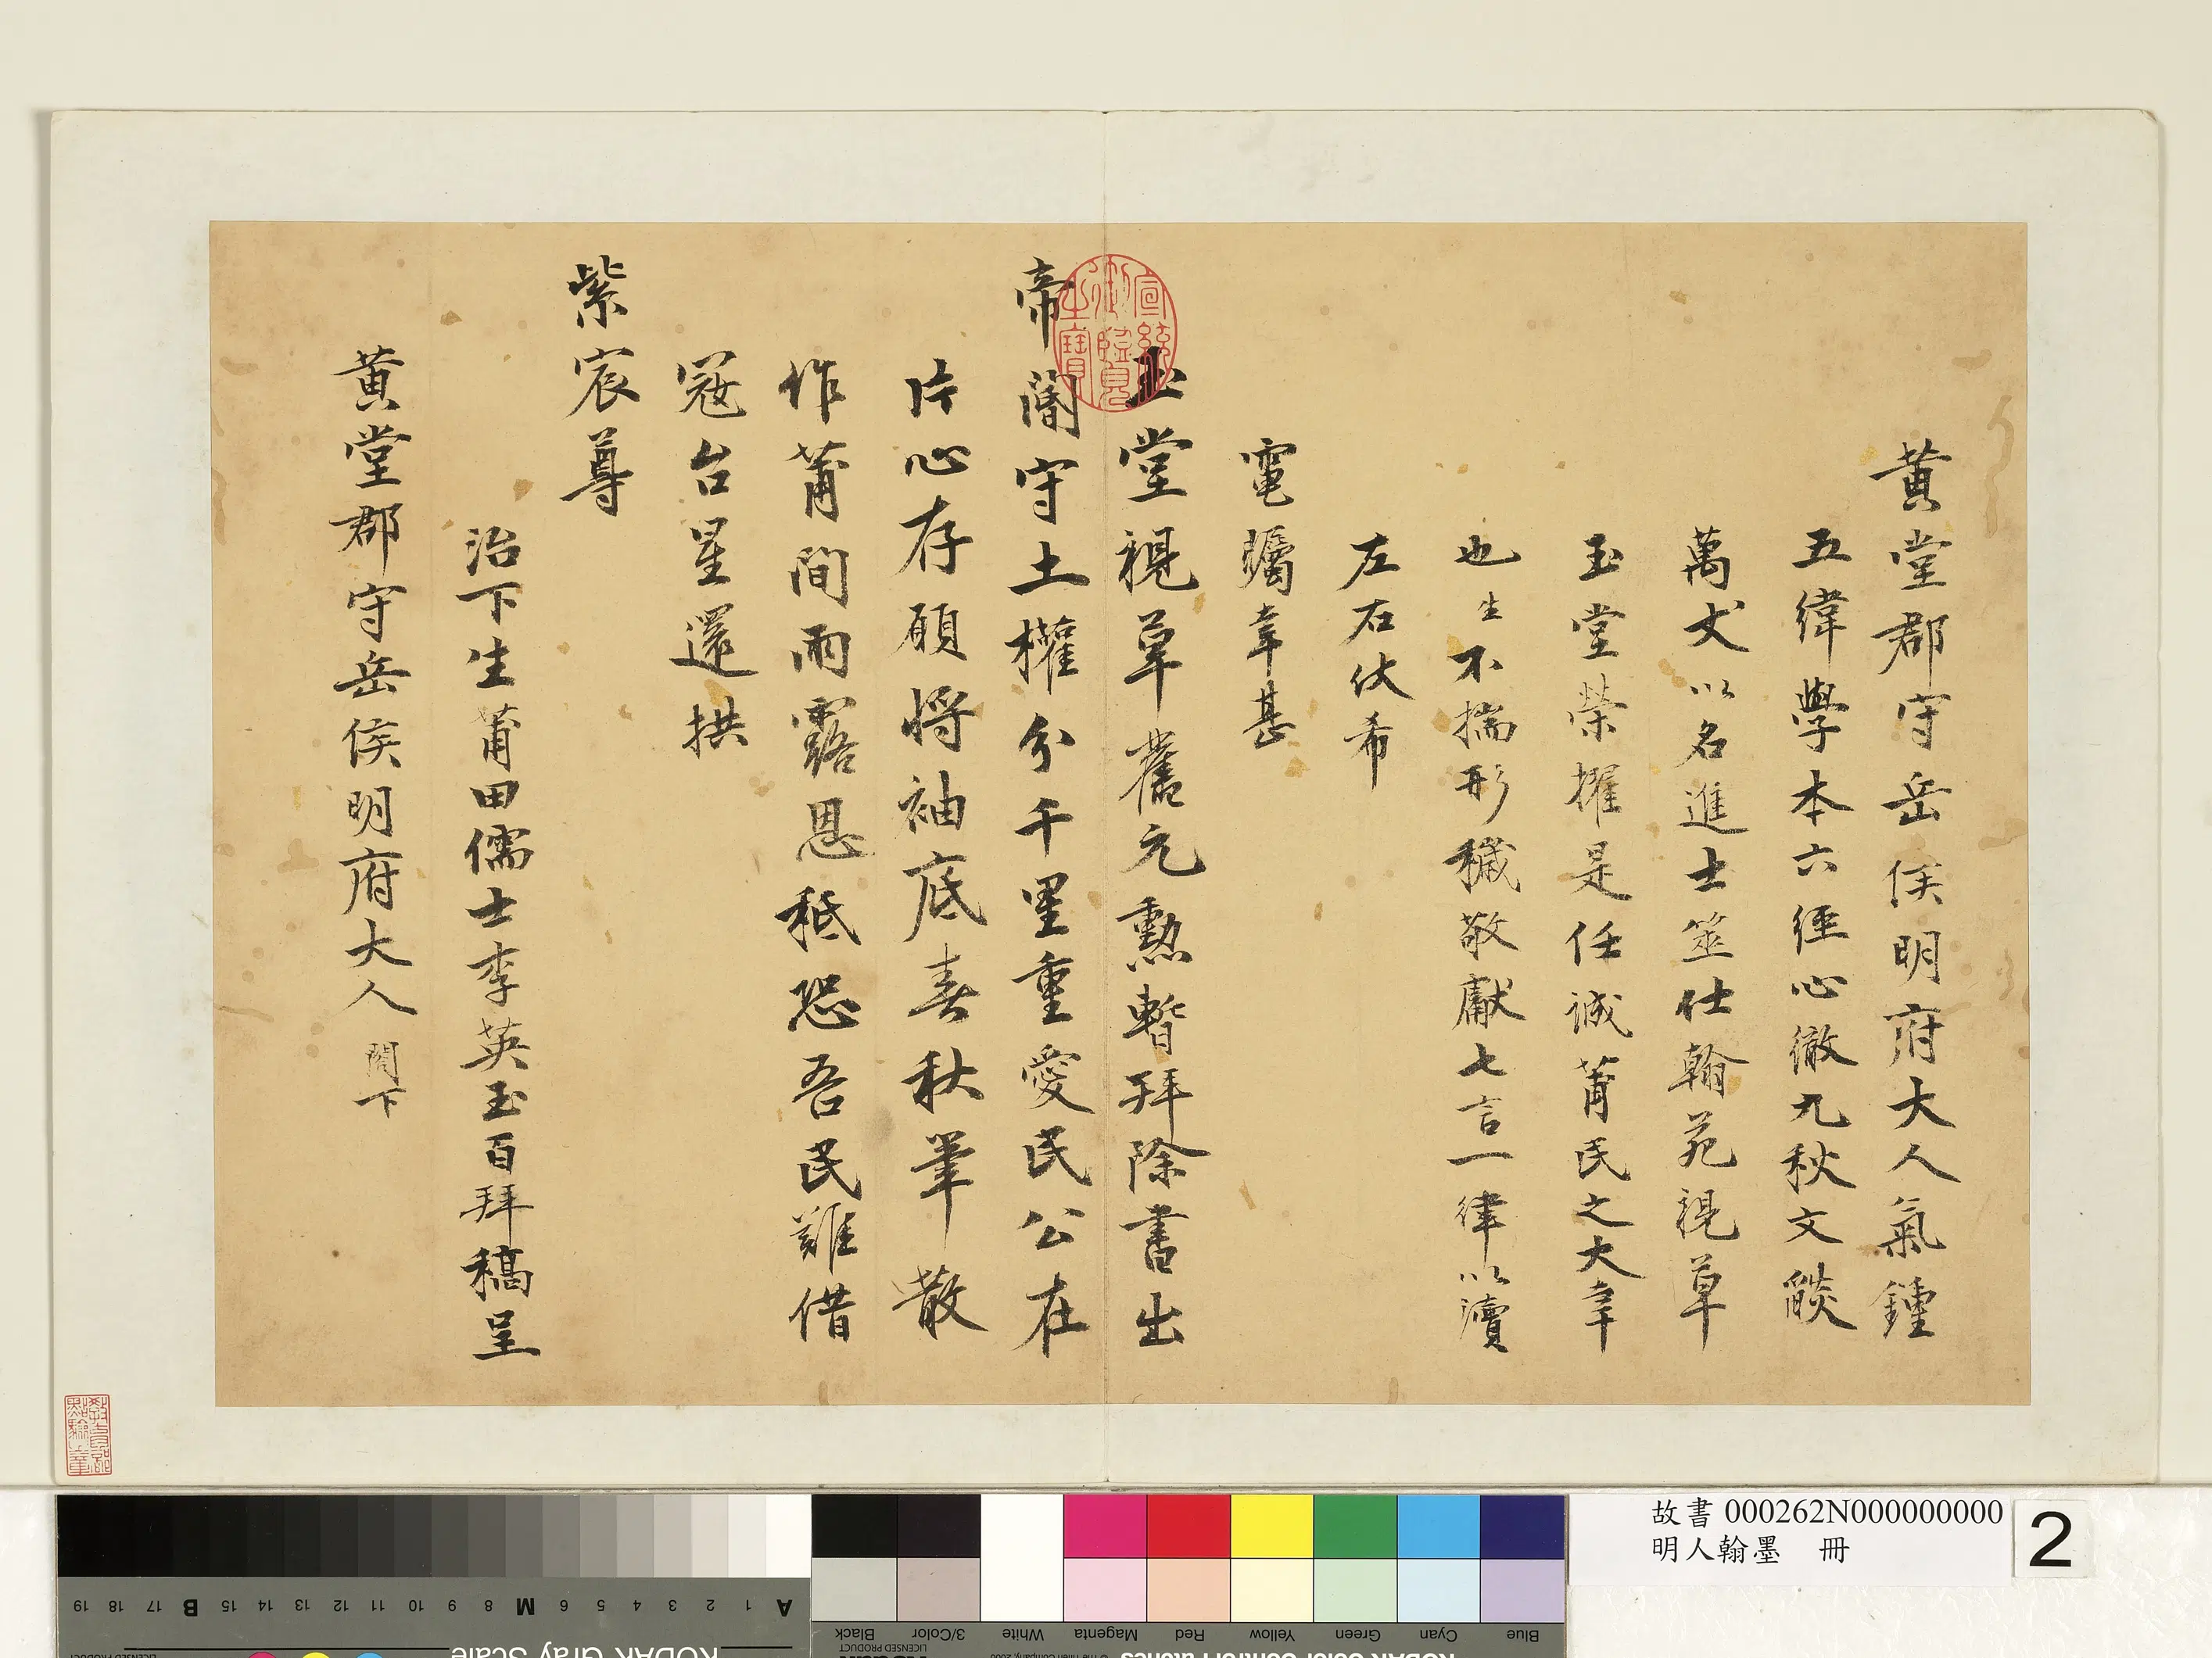 黃堂郡守岳侯明府大人氣鍾
五緯學本六經心徹九秋文燄
萬丈以名進士筮仕翰苑視草
玉堂榮擢是任誠莆民之大幸
也生不揣形穢敬獻七言一律以瀆
左右伏希
電矚幸甚
玉堂視草舊元勲暫拜除書出
帝閽守土權分千里重愛民公在
片心存願將袖底春秋筆散
作莆間雨露恩秪恐吾民難借
寇台星還拱
紫宸尊
治下生莆田儒士李英玉百拜稿呈
黃堂郡守岳侯明府大人 閣下
宣統御覽之寶
故書 000262N000000000
明人翰墨 冊
2
A 1 2 3 4 5 6 M 8 9 10 11 12 13 14 15 B 17 18 19
KODAK Gray Scale
Blue Cyan Green Yellow Red Magenta White 3/Color Black
LICENSED PRODUCT
© The Tiffen Company, 2000
KODAK Color Control Patches